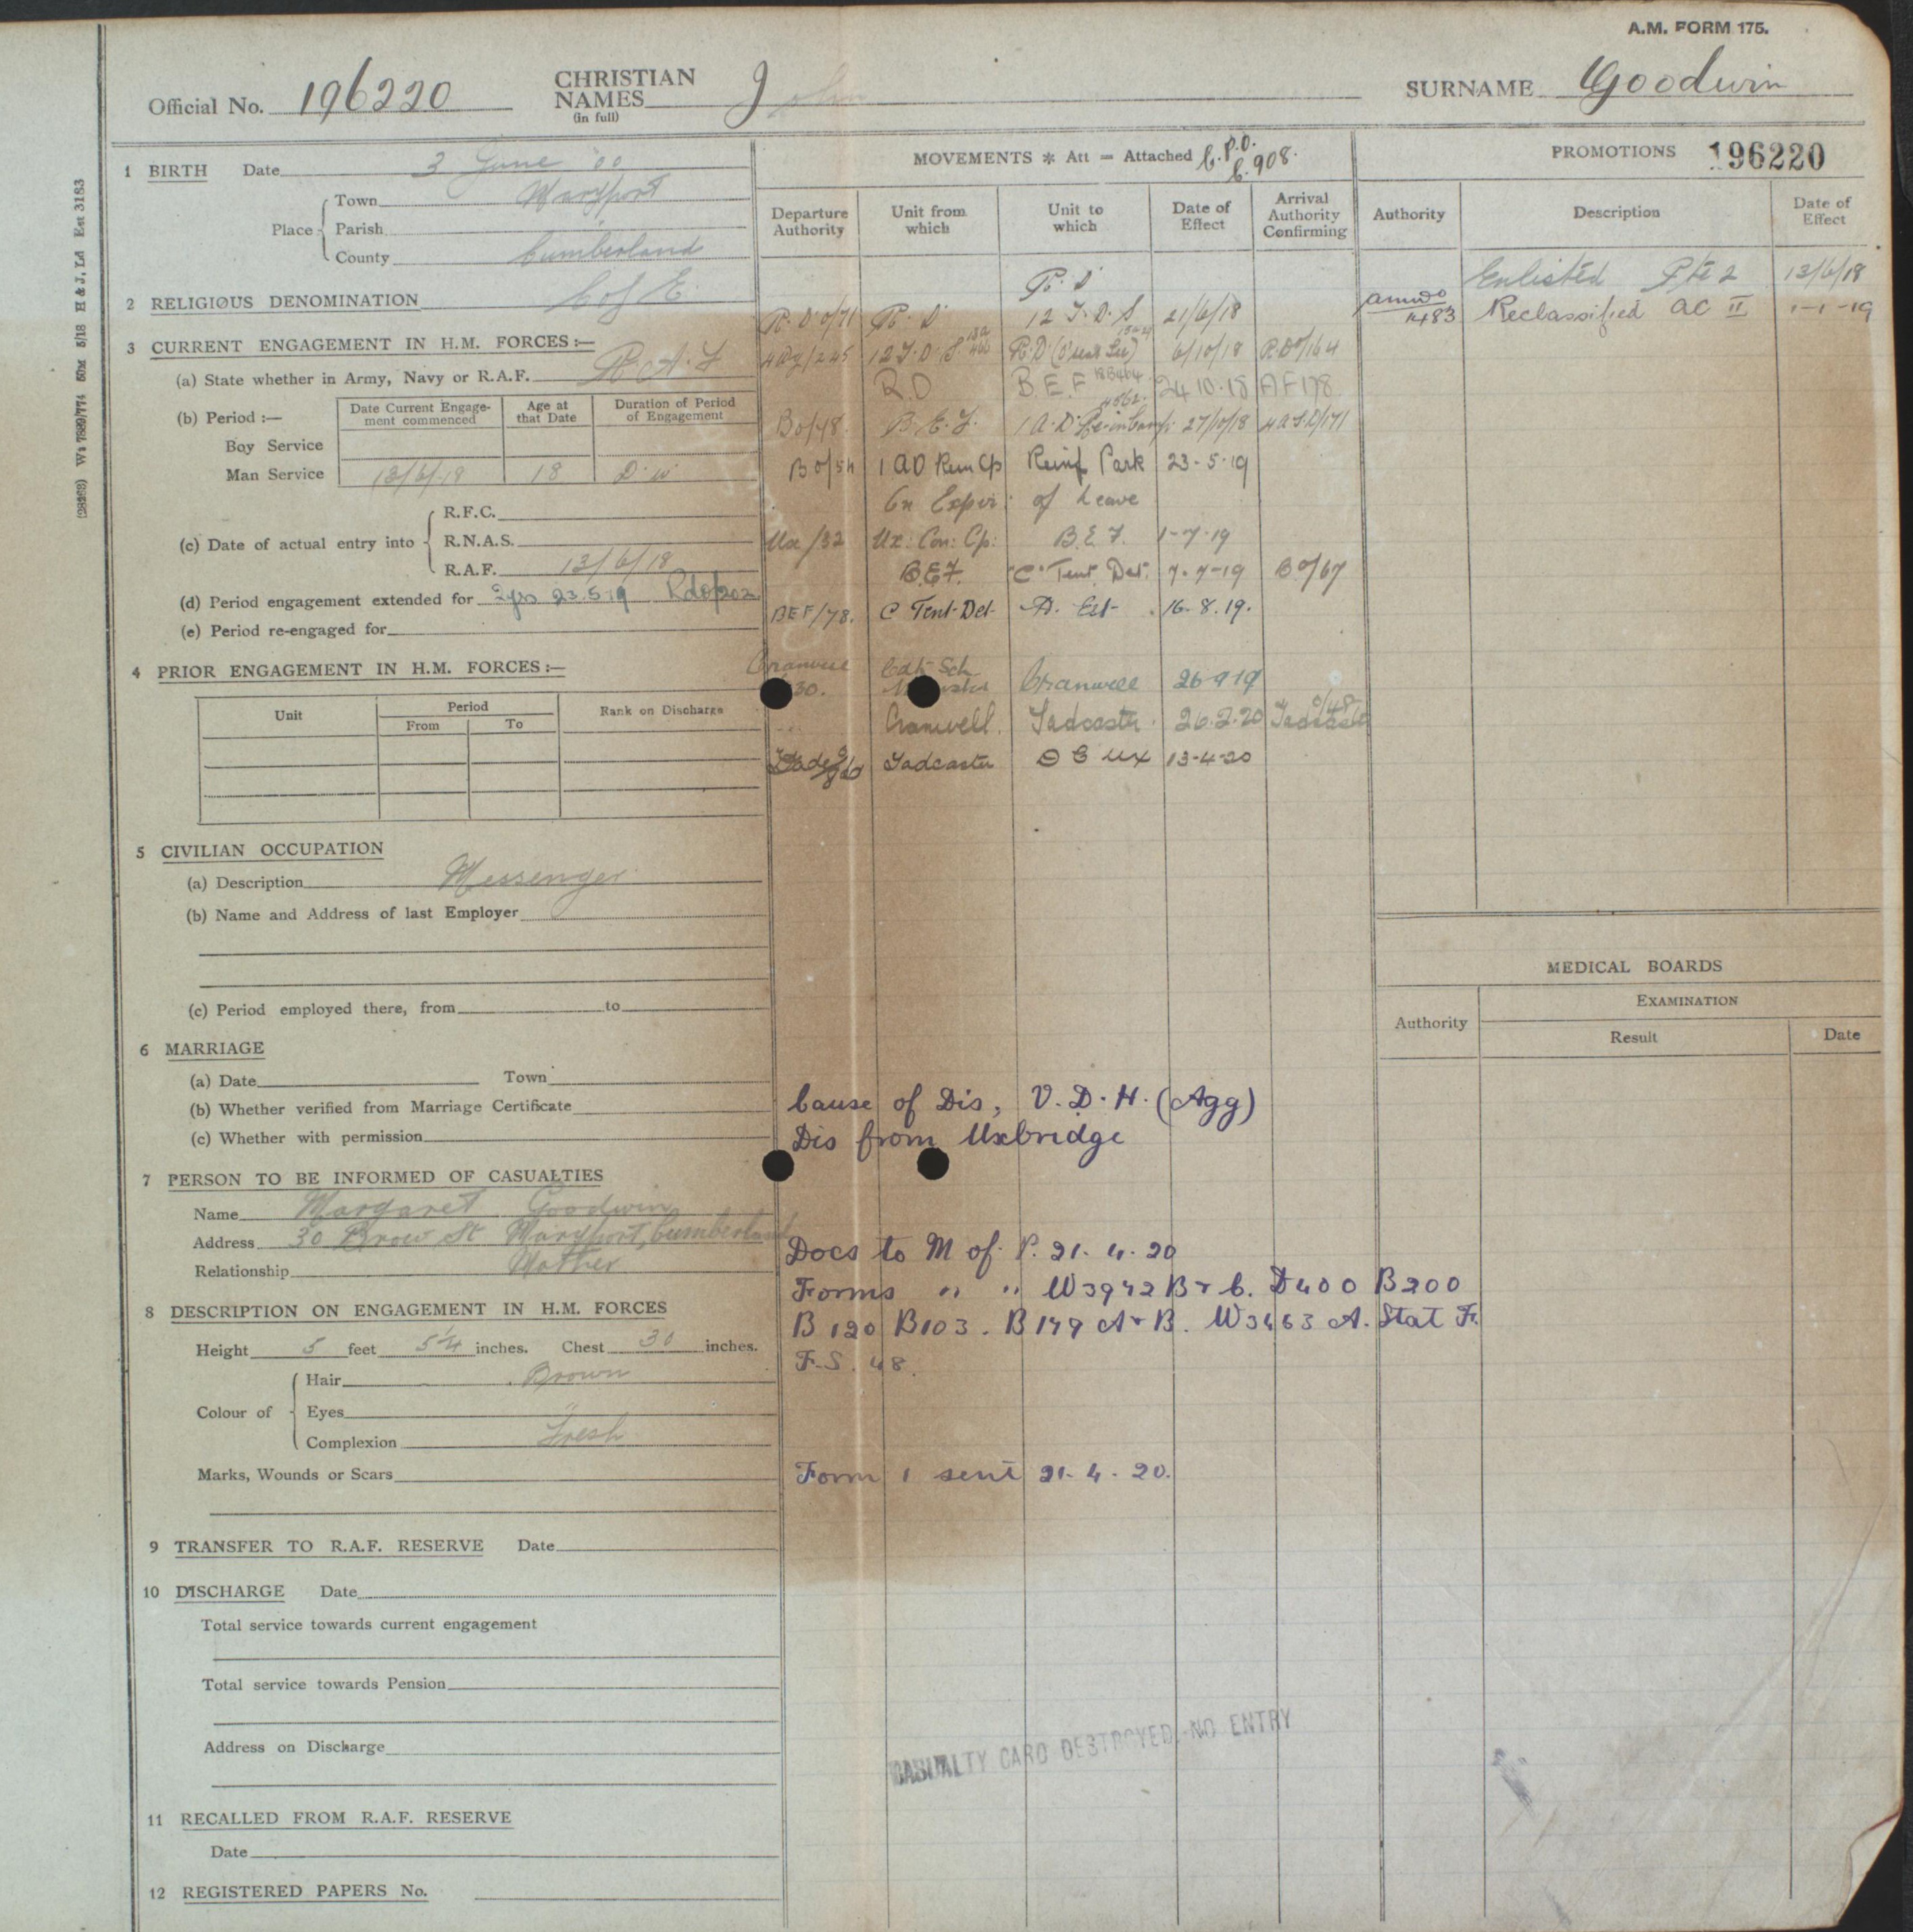 A.M. FORM 175.
Official No. 196220 CHRISTIAN NAMES (in full) John SURNAME Goodwin
1 BIRTH Date 3 June '00
Place Town Maryport
Parish
County Cumberland
2 RELIGIOUS DENOMINATION C of E.
3 CURRENT ENGAGEMENT IN H.M. FORCES:—
(a) State whether in Army, Navy or R.A.F. R.A.F
(b) Period :— Date Current Engagement commenced Age at that Date Duration of Period of Engagement
Boy Service
Man Service 13/6/18 18 D.W
(c) Date of actual entry into R.F.C.
R.N.A.S.
R.A.F. 13/6/18
(d) Period engagement extended for 2yrs 23.5.19 Rdo/202
(e) Period re-engaged for
4 PRIOR ENGAGEMENT IN H.M. FORCES:—
Unit Period From To Rank on Discharge
5 CIVILIAN OCCUPATION
(a) Description Messenger
(b) Name and Address of last Employer
(c) Period employed there, from to
6 MARRIAGE
(a) Date Town
(b) Whether verified from Marriage Certificate
(c) Whether with permission
7 PERSON TO BE INFORMED OF CASUALTIES
Name Margaret Goodwin
Address 30 Brow St Maryport, Cumberland
Relationship Mother
8 DESCRIPTION ON ENGAGEMENT IN H.M. FORCES
Height 5 feet 5¼ inches. Chest 30 inches.
Colour of Hair Brown
Eyes "
Complexion Fresh
Marks, Wounds or Scars
9 TRANSFER TO R.A.F. RESERVE Date
10 DISCHARGE Date
Total service towards current engagement
Total service towards Pension
Address on Discharge
11 RECALLED FROM R.A.F. RESERVE
Date
12 REGISTERED PAPERS No.
MOVEMENTS * Att = Attached C.P.O. C.908.
Departure Authority Unit from which Unit to which Date of Effect Arrival Authority Confirming
R.D
R.D.O/71 R.D 12 T.D.S 21/6/18
12 T.D.S. 6/10/18 R.DO/164
R.D B.E.F 24.10.18 AF178
BO/48 B.E.F. 27/10/18
BO/54 1 AD Rein Cp Reinf Park 23-5-19
Ex Expir: of Leave
Ux/32 Ux: Con: Cp: B.E.F. 1-7-19
B.E.F. "C" Tent Det. 7-7-19 BO/67
BEF/78. C Tent-Det 16.8.19.
Cranwell 30. Cranwell 26 9 19
Cranwell. Tadcaster. 26.2.20 Tadcaster
Tadcaster D C Ux 13-4-20
Cause of Dis, V.D.H. (Agg)
Dis from Uxbridge
Docs to M of P. 21.4.20
Forms " " W3942 B & C. D400 B200
B120 B103. B179 A & B. W3463 A. Stat F.
F.S. 48.
Form 1 sent 21.4.20.
CASUALTY CARD DESTROYED, NO ENTRY
PROMOTIONS 196220
Authority Description Date of Effect
Enlisted Pte 2 13/6/18
amwo 1483 Reclassified AC II 1-1-19
MEDICAL BOARDS
Authority EXAMINATION
Result Date
(28263) Wt 7889/774 50M 5/18 H & J, Ld Est 3183